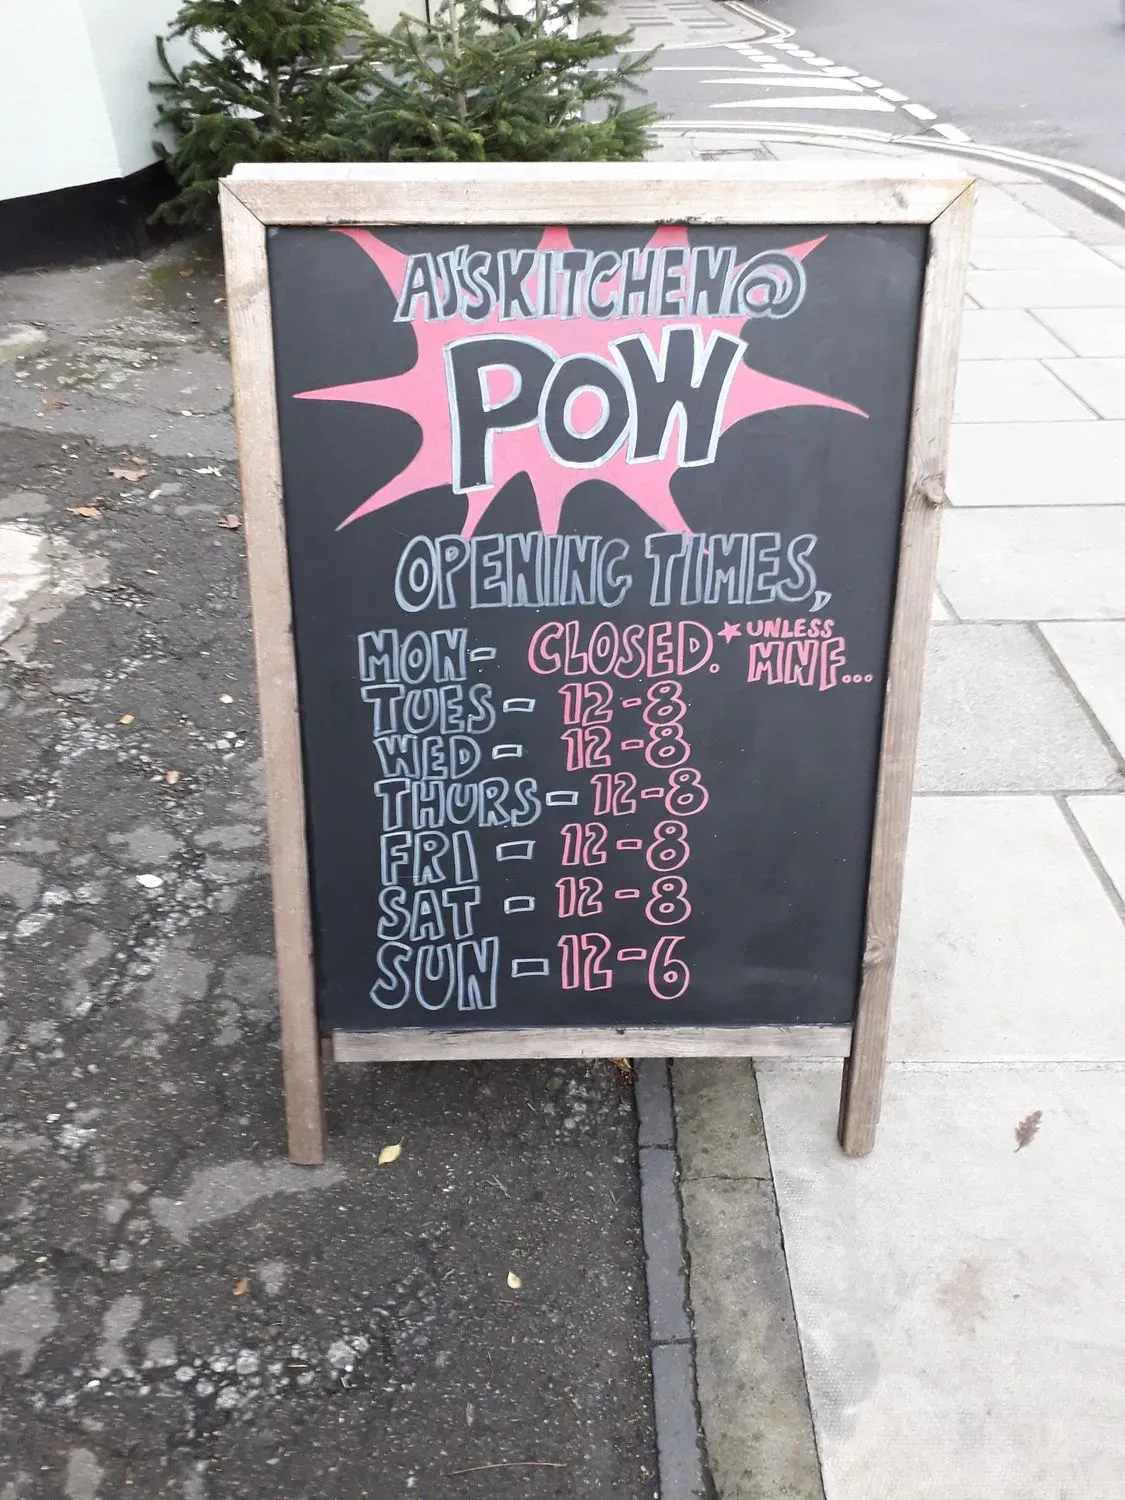 AJ'S KITCHEN @
POW
OPENING TIMES,
MON- CLOSED. *UNLESS MNF...
TUES - 12-8
WED - 12-8
THURS - 12-8
FRI - 12-8
SAT - 12-8
SUN - 12-6